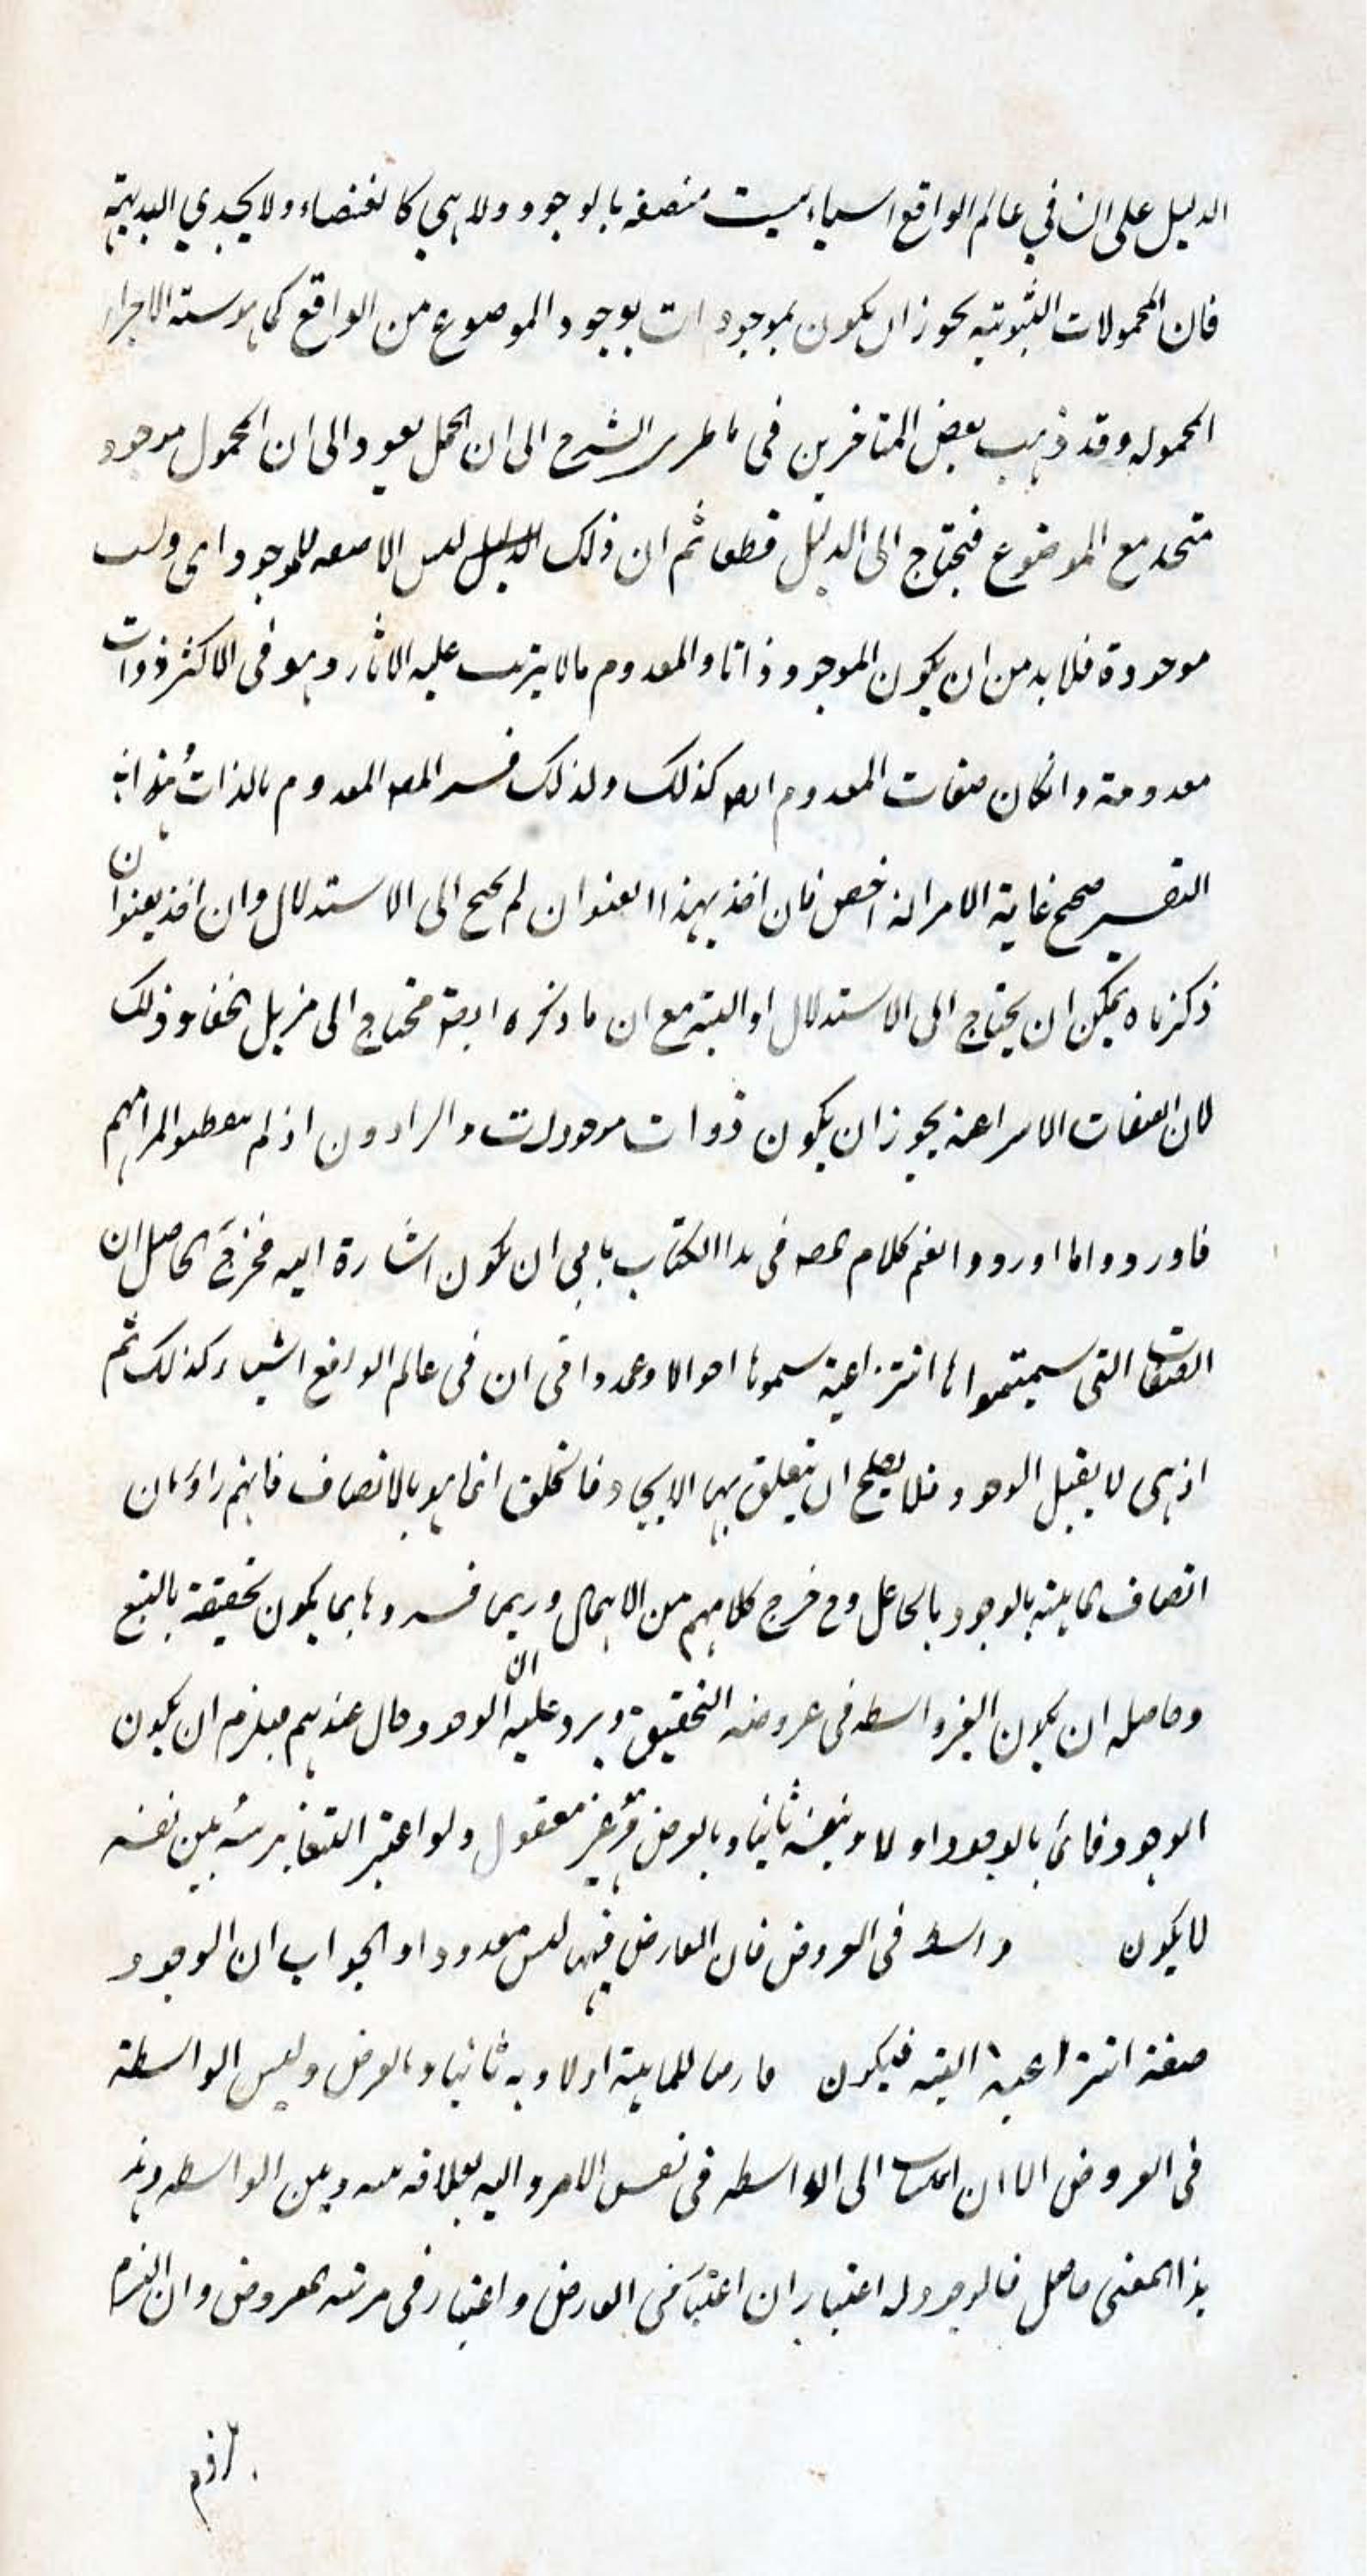 الدليل على ان في عالم الواقع اشياء ليست متصفه بالوجود ولا هي كالعنقاء ولا يجدي البديهة
فان المحمولات الثبوتيه يجوز ان يكون موجودات بوجود الموضوع من الواقع كما هو سنة الاجزاء
المحموله وقد ذهب بعض المتاخرين في الشرح الى ان الحمل يعود الى ان المحمول موجود
متحد مع الموضوع فيحتاج الى الدليل قطعا ثم ان ذلك ليس الا صفه للموجود اي
موجودة فلا بد من ان يكون الموجود ذاتا والمعدوم ما لا يترتب عليه الاثار وهو في الاكثر ذوات
معدومة وانكان صفات المعدوم ايضا كذلك ولذلك فسر المصـ المعدوم بالذات هذا
التفسير صحيح غاية الامر انه اخص فان اخذ بهذا العنوان لم يحتج الى الاستدلال وان اخذ بعنوان
ذكرناه يمكن ان يحتاج الى الاستدلال او البتة مع ان ما ذكره ايضا محتاج الى مزيل الخفاء وذلك
لان الصفات الانتزاعية يجوز ان يكون ذوات موجودات والرادون اذ لم لمرامهم
فاوردوا ما اوردوا نعم كلام المصـ في هذا الكتاب يابى ان يكون اشارة اليه فخرج الحاصل ان
الصفات التي سميتموها انتزاعية سموها احوالا في ان في عالم الواقع اشياء كذلك ثم
اذ هي لا يقبل الوجود فلا يصلح ان يتعلق بها الايجاد فالخلق انما هو بالاتصاف فانهم راوا ان
اتصاف الماهية بالوجود بالجاعل وح خرج كلامهم من الاهمال وربما فسروها بما يكون تحققه بالتبع
وحاصله ان يكون الغير واسطه في عروضه التحقيق ويرد عليه ان الوجود حال عندهم فيلزم ان يكون
الوجود قائما بالوجود اولا وبنفسه ثانيا وبالعرض وهو غير معقول ولو اعتبر التغاير بينه وبين نفسه
لا يكون واسطه في العروض فان العارض فيها ليس معدودا والجواب ان الوجود
صفة انتزاعية البته فيكون عارضا للماهية اولا وبه ثانيا وبالعرض وليس الواسطة
في العروض الا ان الى الواسطه في نفس الامر واليه بعلاقه بينه وبين الواسطه وهذ
هذا المعنى حاصل فالوجود له اعتباران اعتبار في العارض واعتبار في مرتبة المعروض وان التزم